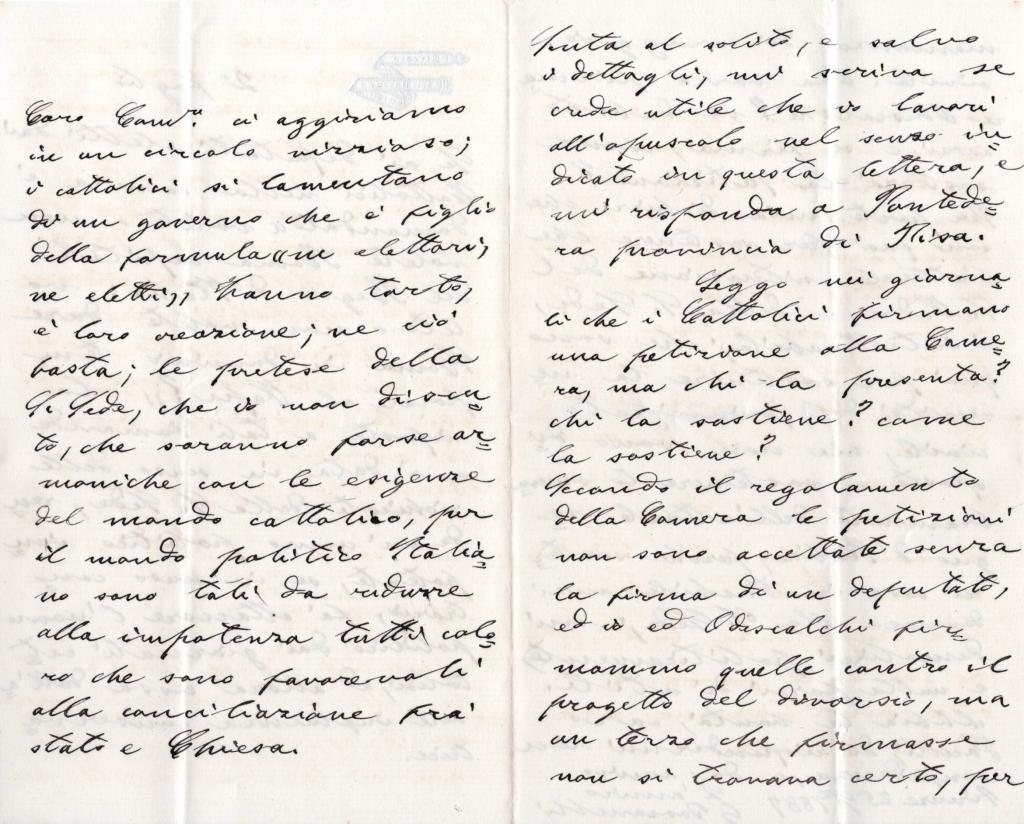 Caro Cam.re ci aggiriamo
in un circolo vizziaso;
i cattolici si lamentano
di un governo che è figlio
della formula "ne elettori,
ne eletti,, hanno torto,
è loro creazione; ne ciò
basta; le pretese della
S. Sede, che io non discu=
to, che saranno forse ar=
moniche con le esigenze
del mondo cattolico, per
il mondo politico Italia=
no sono tali da ridurre
alla impotenza tutti colo=
ro che sono favorevoli
alla conciliazione fra
stato e Chiesa.
al solito, e salvo
i dettagli, mi scriva se
crede utile che io lavori
all'opuscolo nel senso in=
dicato in questa lettera, e
mi risponda a Pontede=
ra provincia di Pisa.
Leggo nei giorna=
li che i Cattolici firmano
una petizione alla Came=
ra, ma chi la presenta?
chi la sostiene? come
la sostiene?
Secondo il regolamento
della Camera le petizioni
non sono accettate senza
la firma di un deputato,
ed io ed Odescalchi fir=
mammo quelle contro il
progetto del divorsio, ma
un terzo che firmasse
non si trovava certo, per